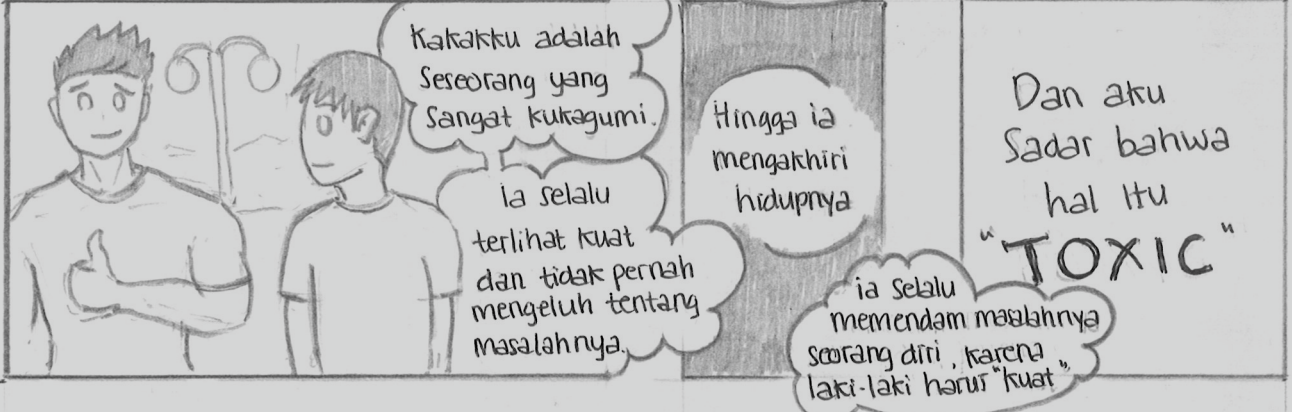 Kakakku adalah
Seseorang yang
Sangat kukagumi.
ia selalu
terlihat kuat
dan tidak pernah
mengeluh tentang
masalahnya.
Hingga ia
mengakhiri
hidupnya
ia selalu
memendam masalahnya
seorang diri, karena
laki-laki harus "kuat"
Dan aku
Sadar bahwa
hal Itu
"TOXIC"